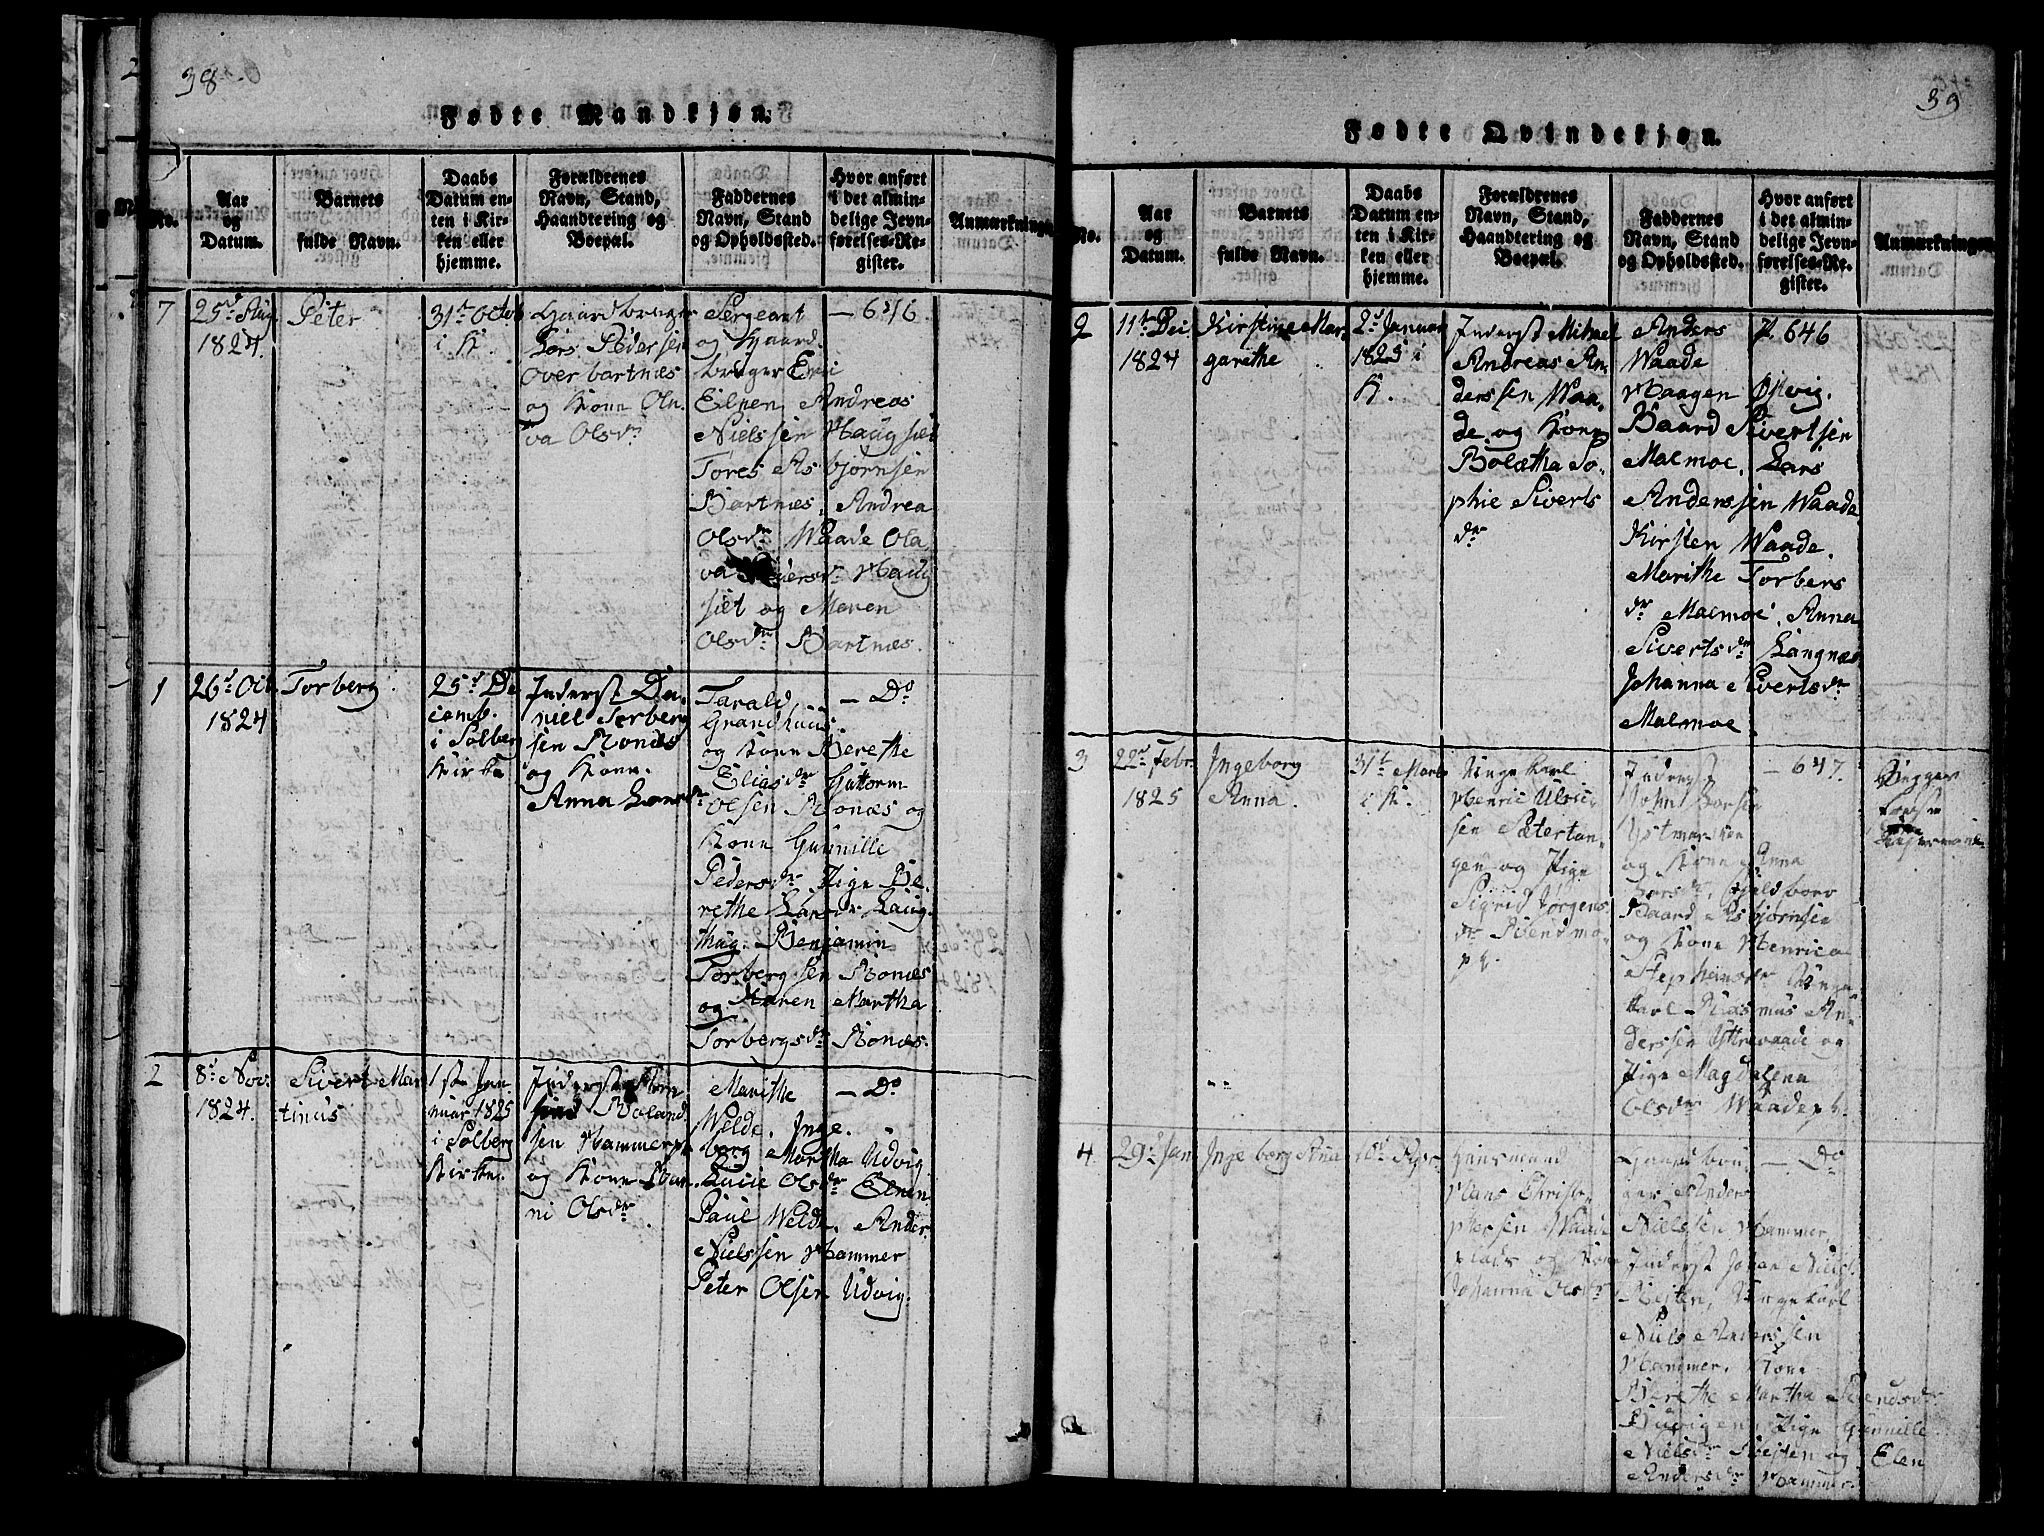 38
Fødte Mandkjøn.
No.
Aar
og
Datum.
Barnets
fulde Navn.
Daabs
Datum en-
ten i Kir-
ken eller
hjemme.
Forældrenes
Navn, Stand,
Haandtering og
Boepæl.
Faddernes
Navn, Stand
og Opholdssted.
Hvor anført
i det almin-
delige Jevn-
førelses-Re-
gister.
Anmærkninger
7
25de Aug.
1824.
Peter
31te Octob
i K.
Gaardbruger
Lars Peders sen
Overbartnæs
og Kone Oln.
va Olsdr
Sergeant
og Gaard
bruger Eric
Elnen Andreas
Nielssen Haugset
Tores Asbjørnsen
Bartnæs. Andrea
Olsdr Waade Ola
va Pedersdr Haug
set og Maren
Olsdr Bartnæs.
— 646
1
26de Oct.
1824
Torberg
25de De
cemb.
i Solberg
Kirke
Inderst Da-
niel Torberg
sen Ronæs
og Kone.
Anna Larsdr
Tarald
Grandhuus
og Kone Berethe
Eliasdr Guttorm
Olsen Ronæs og
Kone Gunnille
Pedersdr Pige Be-
rethe Larsdr Laug.
thug. Benjamin
Torbergsen Ronæs
og Karen Martha
Torbergsdr Ronæs.
— Do
2
8de Nov.
1824.
Sivert Mar
tinus
1ste Jan
nuar 1825
i Solberg
Kirke.
Inderst
Roland
sen Hammer
og Kone
ni Olsdr
Marithe
Welde. Inge.
borg Martha Udvig
Lucie Olsdr Elnen
Paul Welde. Ander.
Nielssen Hammer
Peter Olsen Udvig.
— Do
39
Fødte Qvindekjøn.
No.
Aar
og
Datum.
Barnets
fulde Navn.
Daabs
Datum en-
ten i Kir-
ken eller
hjemme.
Forældrenes
Navn, Stand,
Haandtering og
Boepæl.
Faddernes
Navn, Stand
og Opholdssted.
Hvor anført
i det almin-
delige Jevn-
førelses-Re-
gister.
Anmærkninger
2
11te Dec
1824
Kirstine Mar.
garethe
2de Januar
1825 i
K.
Inderst Mikael
Andreas An.
derssen Waa.
de og Kone
Bolætha So-
phie Siverts
dr
Anders
Waade
Haagen Østvig.
Baard Sivertsen
Malmoe. Lars
Anderssen Waade
Kirsten Waade.
Marithe Torbers
dr Malmoe. Anna
Sivertsdr Langnæs
Johanna Sivertsdr
Malmoe
P. 646
3
22de Febr.
1825
Ingeborg
Anna.
31te Marts
i K.
Unge Karl
Henric Ulric
sen Sætertan-
gen og Pige
Sigrid Jørgens
dr
Inderst
John Larsen
Østmarken
og Kone Anna
Larsdr,
Baard Asbjørnsen
og Kone Henrica
Stephensdr Unge
Karl Rasmus An
derssen Østrewaade og
Pige Magdalena
Olsdr Waade
— 647.
Begges
4
29de Jan
Ingeborg Anna
Apr.
Huusmand
Hans Christo
phersen Waade
plads og Kone
Johanna Olsdr
Gaardbru
ger Anders
Nielssen Hammer,
Inderst Johan Niels.
Ungekarl
Niels Anderssen
Hammer. Kone
Berethe Martha Svendsdr
Pige Gunnille
Nielsdr og Elen
Andersdr Hammer.
— Do